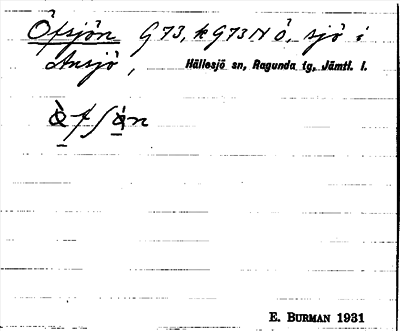 Öfsjön G 73, k G 73 N Ö, sjö i
Ansjö, Hällesjö sn, Ragunda tg, Jämtl. l.
E. BURMAN 1931